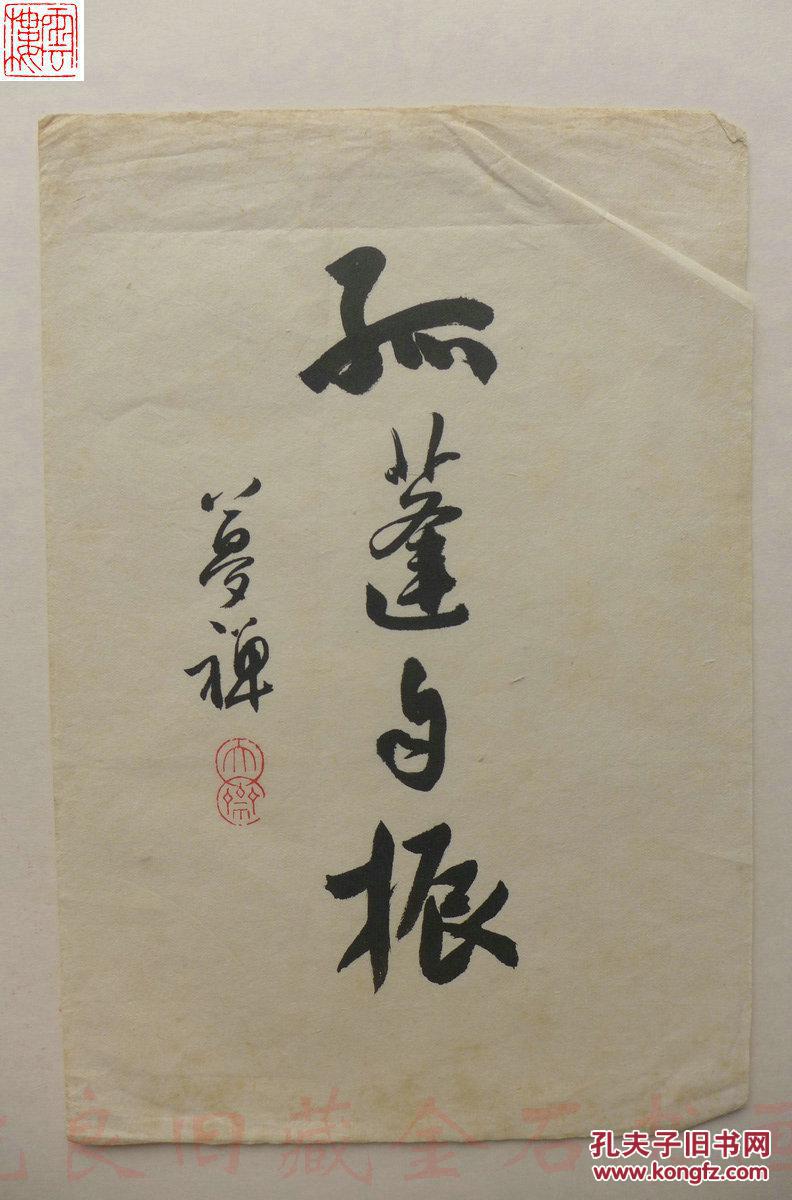 孤蓬自振
夢禅
雲樓
良旧藏金石书画
孔夫子旧书网
www.kongfz.com